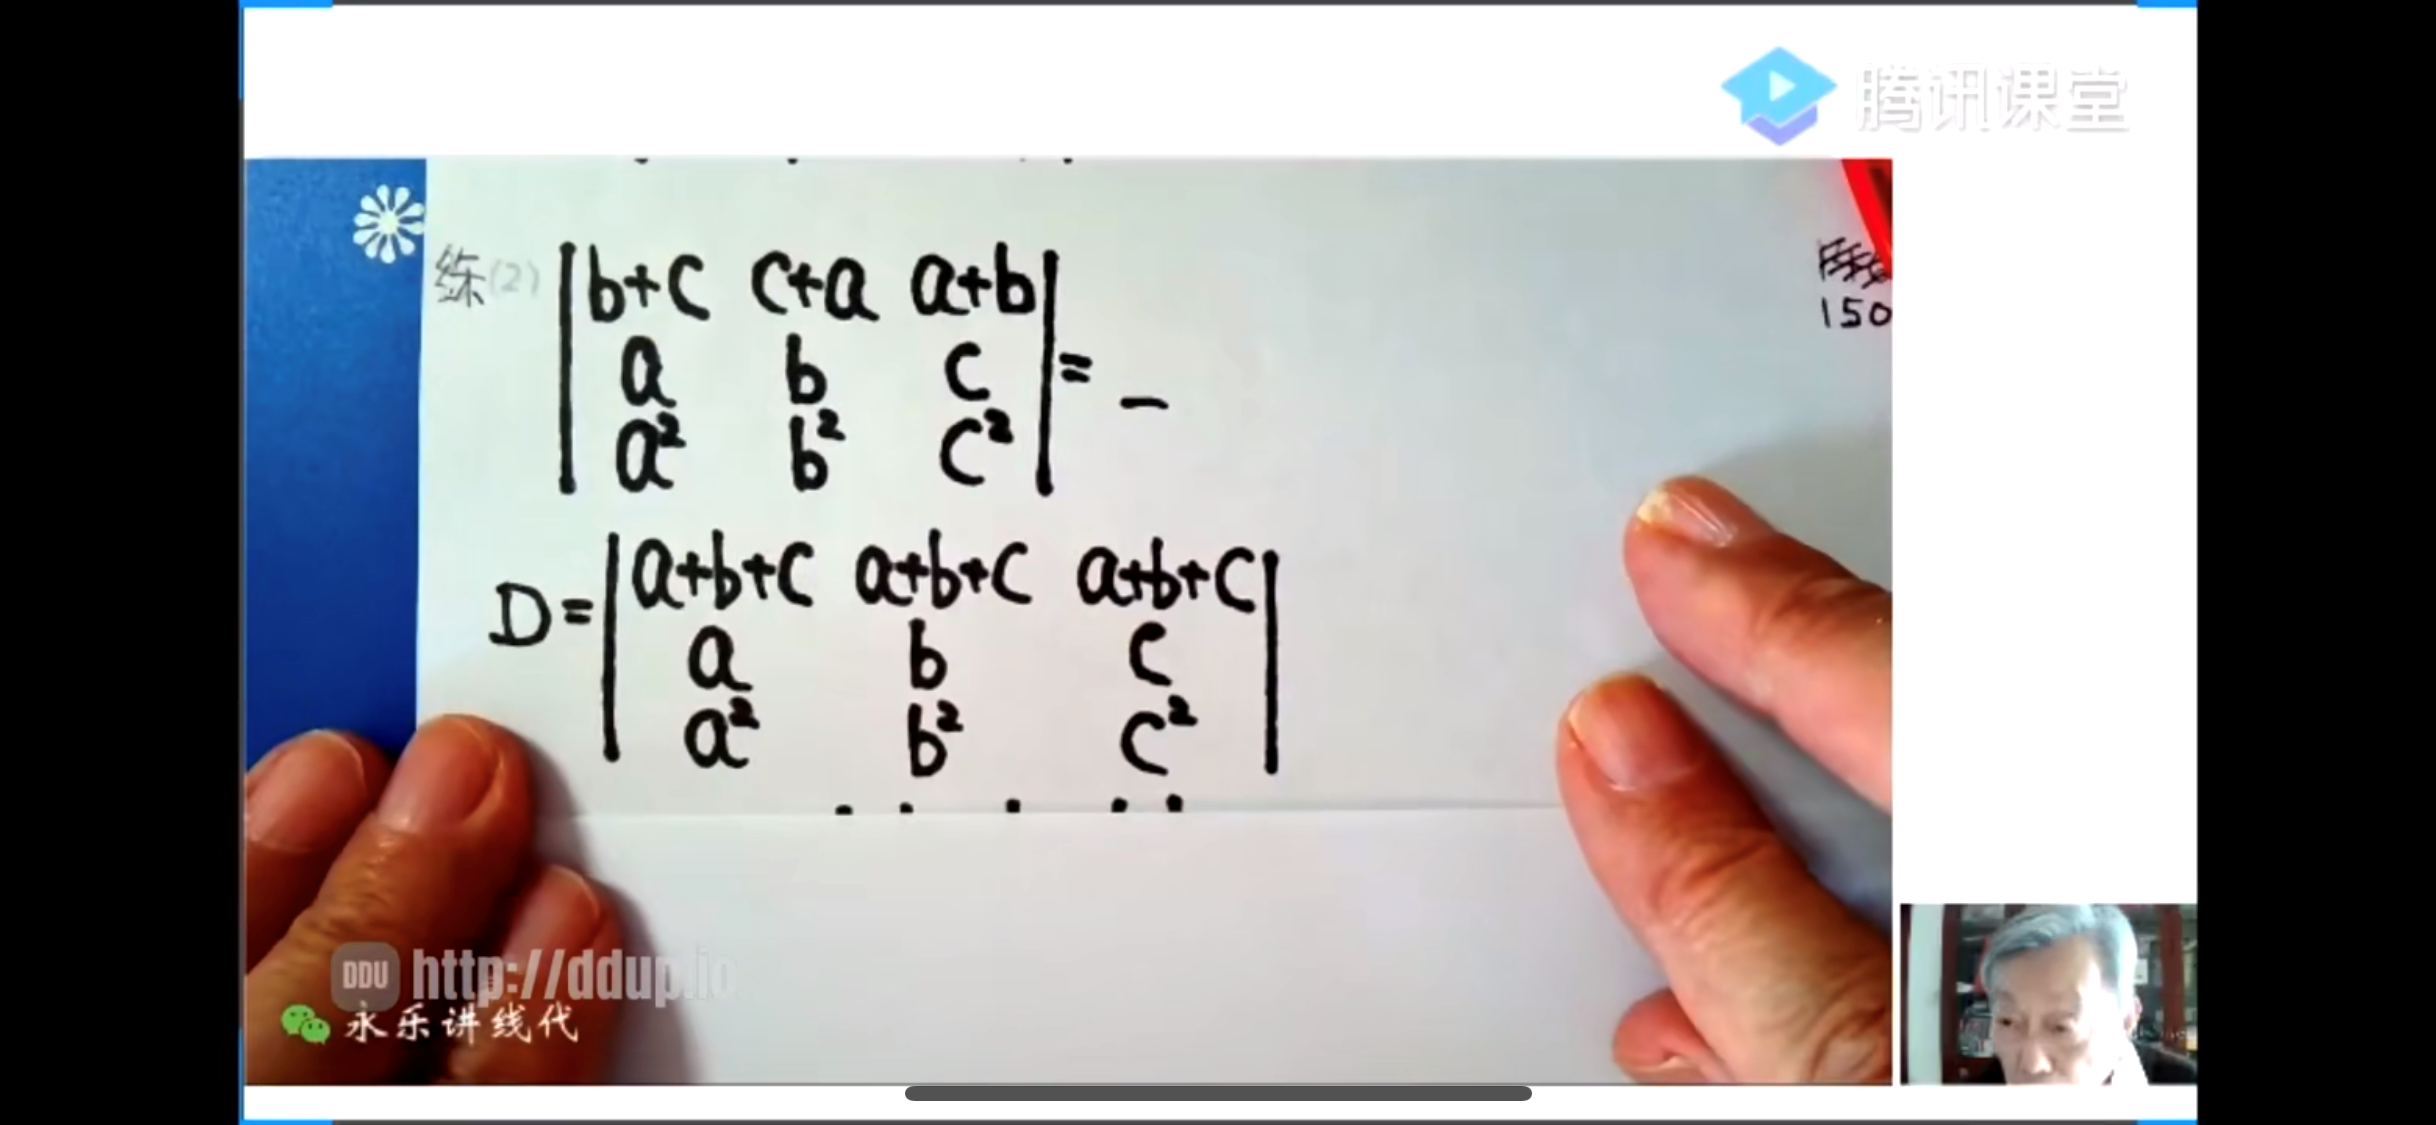 腾讯课堂
练(2) |b+c c+a a+b|
|a b c| = _
|a² b² c²|
150
|a+b+c a+b+c a+b+c|
D= |a b c|
|a² b² c²|
DDU http://ddup.io
永乐讲线代